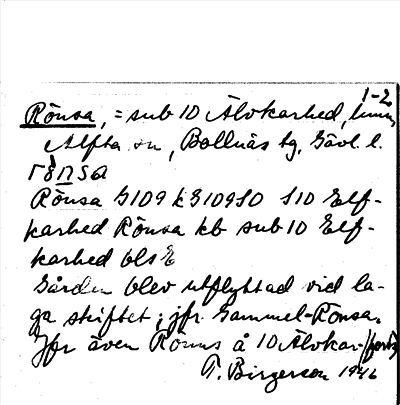 1-2
Rönsa, = sub 10 Älvkarhed,
Alfta sn, Bollnäs tg, Gävl. l.
Rönsa G109 kG109SO S10 Elf-
karhed Rönsa kb sub 10 Elf-
karhed bls E
Gården blev utflyttad vid la-
ga skiftet; jfr. Gammel-Rönsa.
Jfr även Rönns å 10 Älvkar- /forts
T. Birgerson 1946